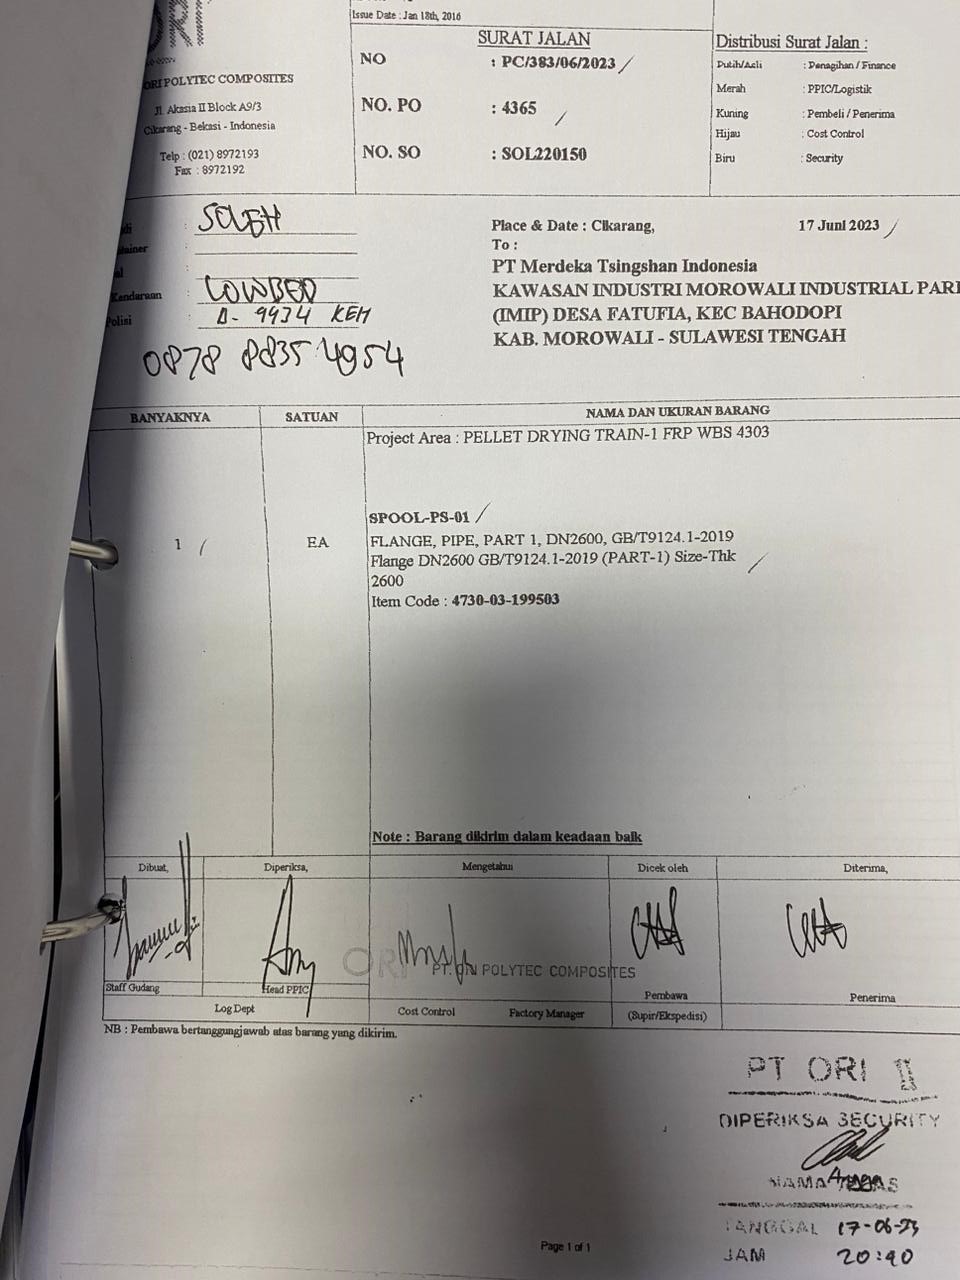 ORI
Issue Date : Jan 18th, 2016
ORI POLYTEC COMPOSITES
Jl. Akasia II Block A9/3
Cikarang - Bekasi - Indonesia
Telp : (021) 8972193
Fax : 8972192
SURAT JALAN
NO : PC/383/06/2023
NO. PO : 4365
NO. SO : SOL220150
Distribusi Surat Jalan :
Putih/Asli : Penagihan / Finance
Merah : PPIC/Logistik
Kuning : Pembeli / Penerima
Hijau : Cost Control
Biru : Security
: SOLEH
:
Kendaraan : LOWBED
Polisi : 9934 KEH
0878 8835 4954
Place & Date : Cikarang, 17 Juni 2023
To :
PT Merdeka Tsingshan Indonesia
KAWASAN INDUSTRI MOROWALI INDUSTRIAL PARK
(IMIP) DESA FATUFIA, KEC BAHODOPI
KAB. MOROWALI - SULAWESI TENGAH
BANYAKNYA SATUAN NAMA DAN UKURAN BARANG
Project Area : PELLET DRYING TRAIN-1 FRP WBS 4303
SPOOL-PS-01
1 EA FLANGE, PIPE, PART 1, DN2600, GB/T9124.1-2019
Flange DN2600 GB/T9124.1-2019 (PART-1) Size-Thk
2600
Item Code : 4730-03-199503
Note : Barang dikirim dalam keadaan baik
Dibuat, Diperiksa, Mengetahui Dicek oleh Diterima,
ORI PT. ORI POLYTEC COMPOSITES
Staff Gudang Head PPIC Pembawa Penerima
Log Dept Cost Control Factory Manager (Supir/Ekspedisi)
NB : Pembawa bertanggungjawab atas barang yang dikirim.
PT ORI II
DIPERIKSA SECURITY
NAMA
TANGGAL 17-06-23
JAM 20:40
Page 1 of 1